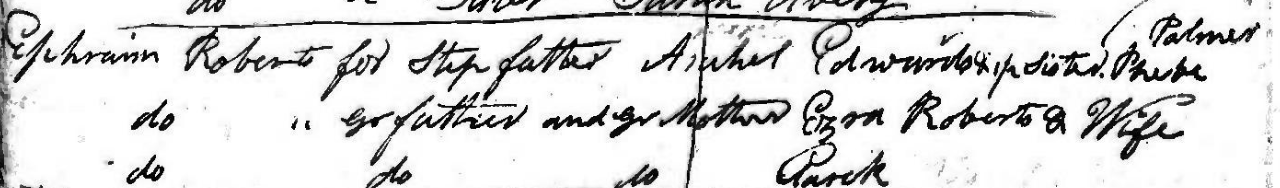 do " Sister Sarah Avery
Palmer
Ephraim Roberts for Step father Asahel Edwards & sister Phebe
do " gr father and gr Mother Ezra Roberts & Wife
do do do Clarck